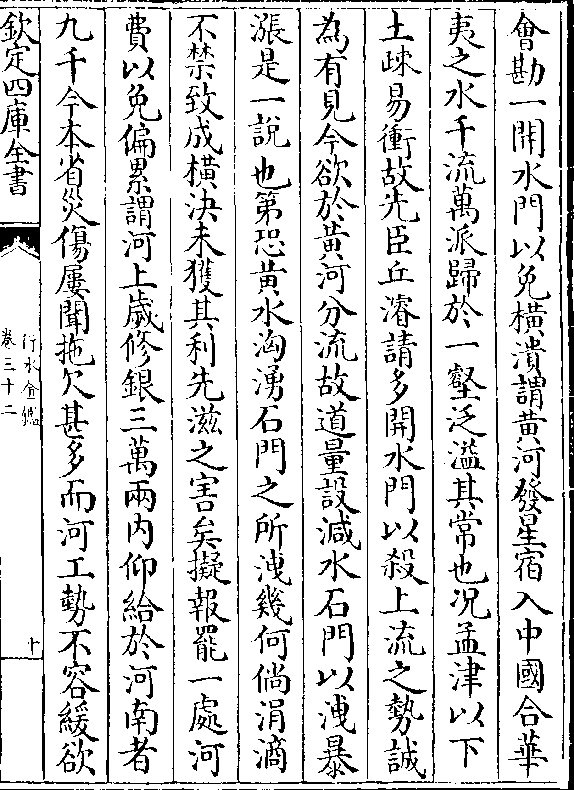 會勘一開水門以免橫潰謂黄河發星宿入中國合華
夷之水千流萬派歸於一壑泛濫其常也况孟津以下
土疎易衝故先臣丘濬請多開水門以殺上流之勢誠
為有見今欲於黄河分流故道量設減水石門以洩暴
漲是一說也第恐黄水洶湧石門之所洩幾何倘涓滴
不禁致成橫决未獲其利先滋之害矣擬報罷一處河
費以免偏累謂河上歲修銀三萬兩内仰給於河南者
九千今本省災傷屢聞拖欠甚多而河工勢不容緩欲
欽定四庫全書
行水金鑑
卷三十二
十